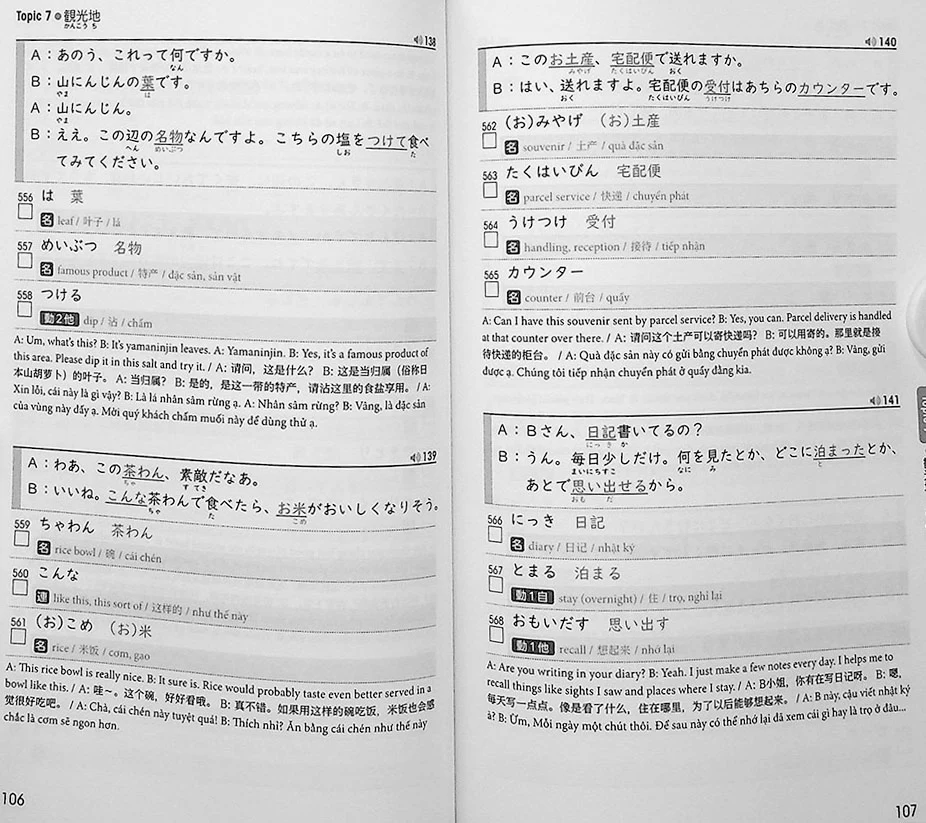 Topic 7 ● 観光地
かんこう ち
138
A：あのう、これって何ですか。
なん
B：山にんじんの葉です。
やま は
A：山にんじん。
やま
B：ええ。この辺の名物なんですよ。こちらの塩をつけて食べ
へん めいぶつ しお た
てみてください。
556 は 葉
名 leaf / 叶子 / lá
557 めいぶつ 名物
名 famous product / 特产 / đặc sản, sản vật
558 つける
動2他 dip / 沾 / chấm
A: Um, what's this? B: It's yamaninjin leaves. A: Yamaninjin. B: Yes, it's a famous product of
this area. Please dip it in this salt and try it. / A: 请问，这是什么？ B: 这是当归属（俗称日
本山胡萝卜）的叶子。 A: 当归属？ B: 是的，是这一带的特产，请沾这里的食盐享用。 / A:
Xin lỗi, cái này là gì vậy? B: Là lá nhân sâm rừng ạ. A: Nhân sâm rừng? B: Vâng, là đặc sản
của vùng này đấy ạ. Mời quý khách chấm muối này dể dùng thử ạ.
139
A：わあ、この茶わん、素敵だなあ。
ちゃ す てき
B：いいね。こんな茶わんで食べたら、お米がおいしくなりそう。
ちゃ た こめ
559 ちゃわん 茶わん
名 rice bowl / 碗 / cái chén
560 こんな
連 like this, this sort of / 这样的 / như thế này
561 （お）こめ （お）米
名 rice / 米饭 / cơm, gạo
A: This rice bowl is really nice. B: It sure is. Rice would probably taste even better served in a
bowl like this. / A: 哇～。这个碗，好好看哦。 B: 真不错。如果用这样的碗吃饭，米饭也会感
觉很好吃吧。 / A: Chà, cái chén này tuyệt quá! B: Thích nhỉ? Ăn bằng cái chén như thế này
chắc là cơm sẽ ngon hơn.
106
140
A：このお土産、宅配便で送れますか。
みやげ たくはいびん おく
B：はい、送れますよ。宅配便の受付はあちらのカウンターです。
おく たくはいびん うけつけ
562 （お）みやげ （お）土産
名 souvenir / 土产 / quà đặc sản
563 たくはいびん 宅配便
名 parcel service / 快递 / chuyển phát
564 うけつけ 受付
名 handling, reception / 接待 / tiếp nhận
565 カウンター
名 counter / 前台 / quầy
A: Can I have this souvenir sent by parcel service? B: Yes, you can. Parcel delivery is handled
at that counter over there. / A: 请问这个土产可以寄快递吗？ B: 可以用寄的。那里就是接
待快递的柜台。 / A: Quà đặc sản này có gửi bằng chuyển phát được không ạ? B: Vâng, gửi
được ạ. Chúng tôi tiếp nhận chuyển phát ở quầy đằng kia.
141
A：Bさん、日記書いてるの？
にっ き か
B：うん。毎日少しだけ。何を見たとか、どこに泊まったとか、
まいにちすこ なに み と
あとで思い出せるから。
おも だ
566 にっき 日記
名 diary / 日记 / nhật ký
567 とまる 泊まる
動1自 stay (overnight) / 住 / trọ, nghỉ lại
568 おもいだす 思い出す
動1他 recall / 想起来 / nhớ lại
A: Are you writing in your diary? B: Yeah. I just make a few notes every day. I helps me to
recall things like sights I saw and places where I stay. / A: B小姐，你有在写日记呀。 B: 嗯，
每天写一点点。像是看了什么，住在哪里，为了以后能够想起来。 / A: B này, cậu viết nhật ký
à? B: Ừm, Mỗi ngày một chút thôi. Để sau này có thể nhớ lại đã xem cái gì hay là trọ ở đâu...
107